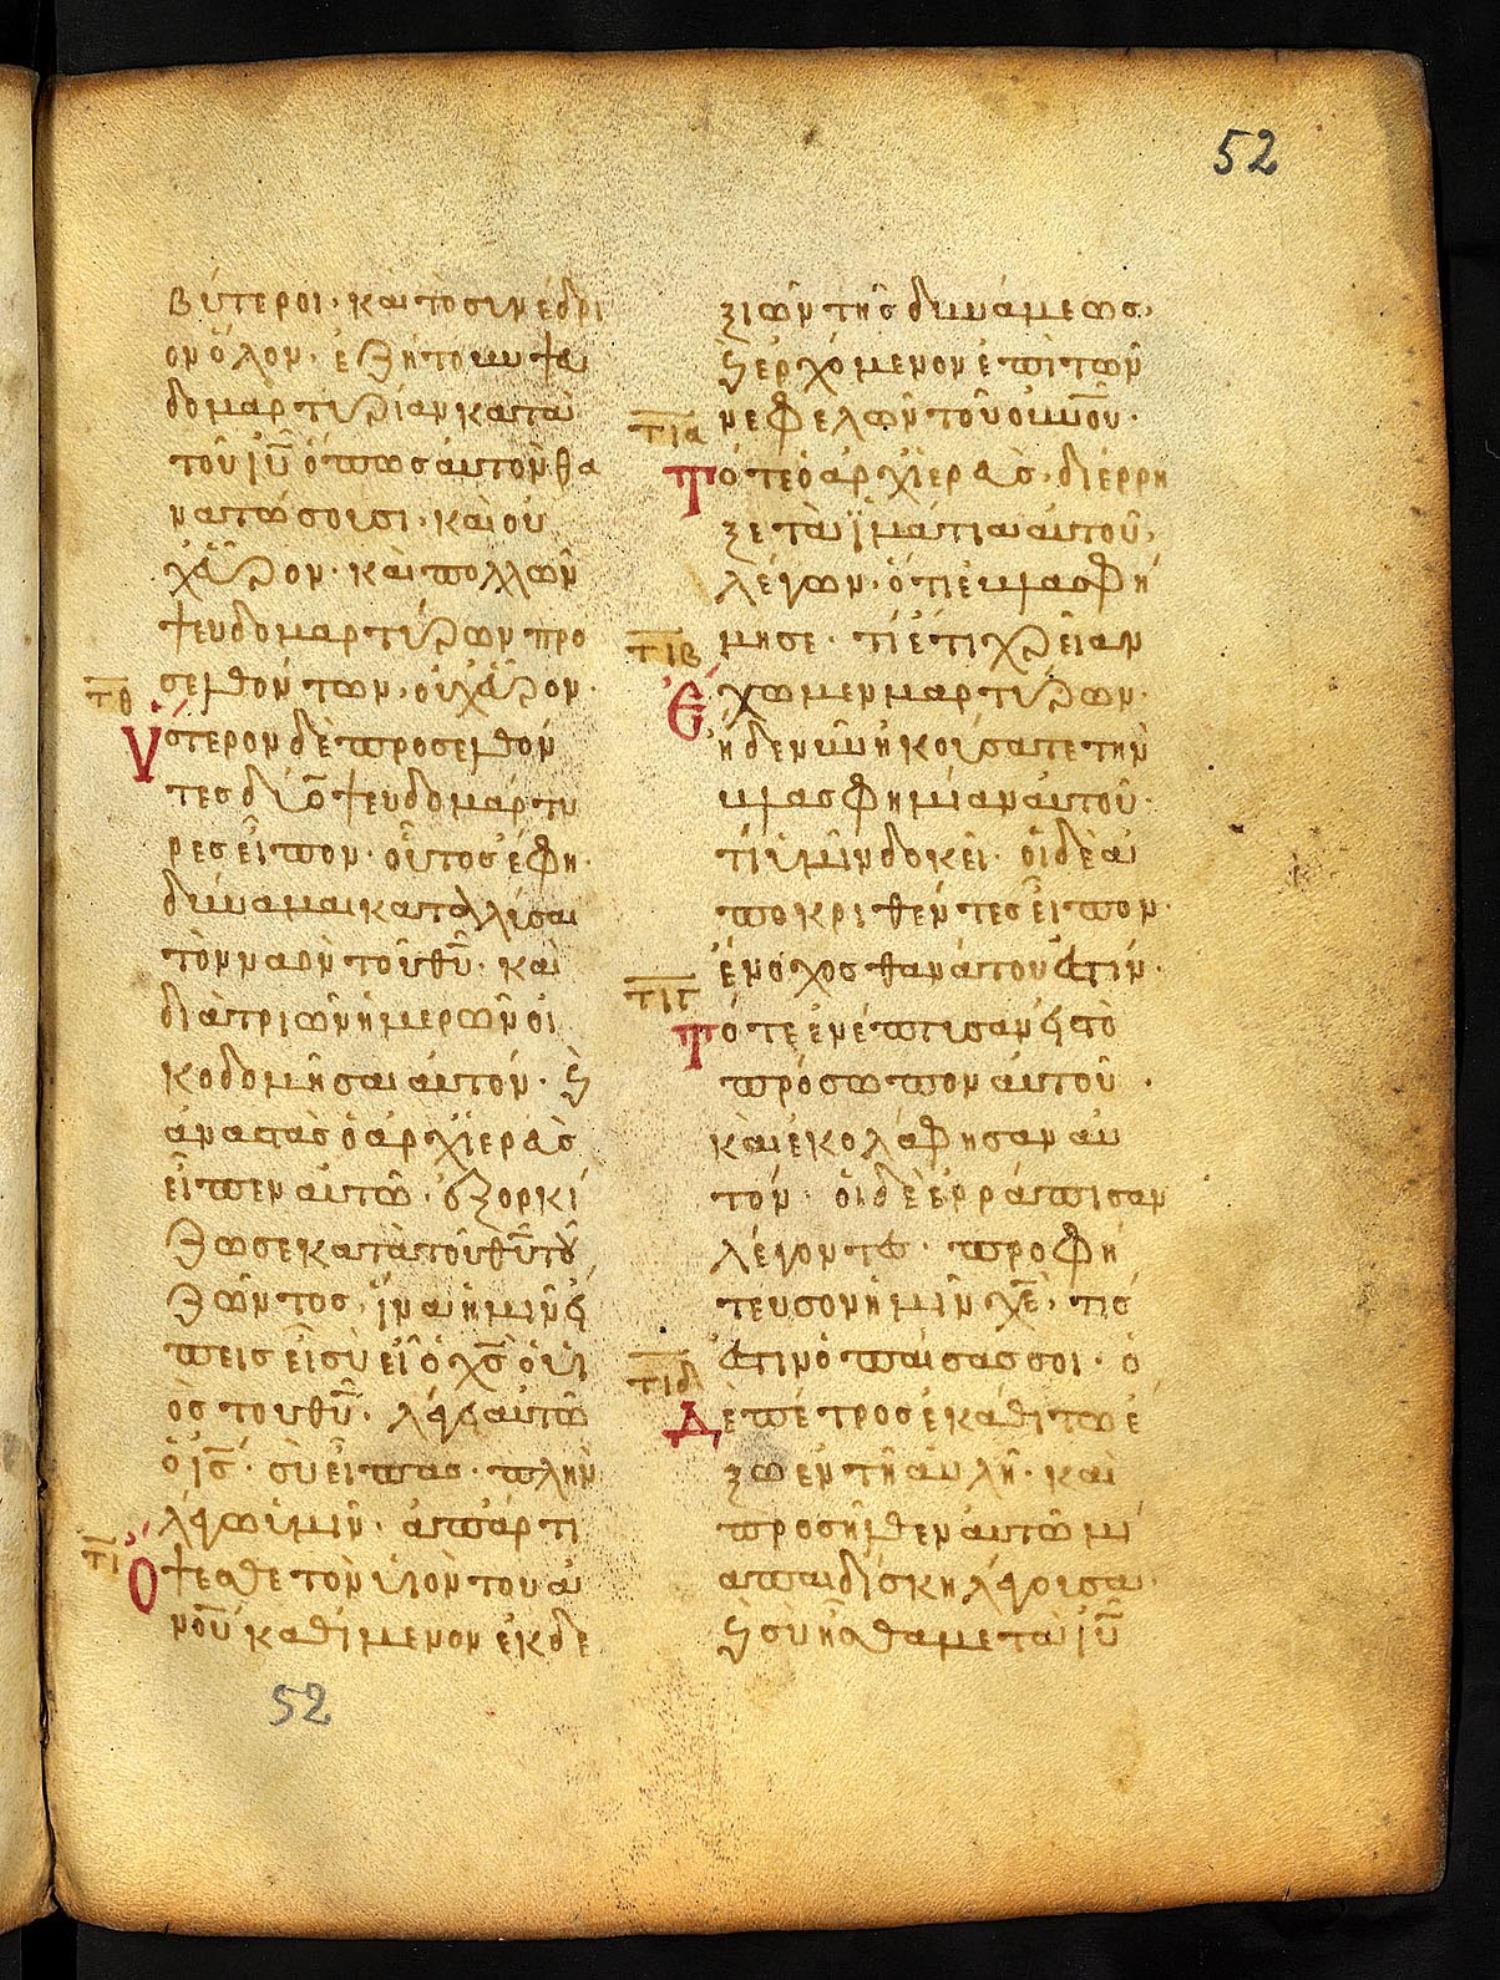 52
βύτεροι· καὶ τὸ συνέδρι
ον ὅλον· ἐζήτουν ψευ
δομαρτυρίαν κατὰ
τοῦ ἰῦ ὅπως αὐτὸν θα
νατώσουσι· καὶ οὐ
χεῦρον· καὶ πολλῶν
ψευδομαρτύρων προ
σελθόντων, οὐχεῦρον·
τθ
Ὕστερον δὲ προσελθόν
τες δύο ψευδομάρτυ
ρες εἶπον· οὗτος ἔφη·
δύναμαι καταλύσαι
τὸν ναὸν τοῦ θῦ· καὶ
διὰ τριῶν ἡμερῶν οἰ
κοδομῆσαι αὐτόν· ϗ
ἀναστὰς ὁ ἀρχϊερεὺς
εἶπεν αὐτῶ· ἐξορκί
ζω σε κατὰ τοῦ θῦ τοῦ
ζῶντος, ἵνα ἡμῖν εἴ
πεις εἰ σὺ εἶ ὁ χς ὁ υἱ
ὸς του θῦ· λέγει αὐτῶ
ὁ ις· σὺ εἶπας· πλὴν
λέγω ὑμῖν· ἀπάρτι
τι
Ὄψεσθε τὸν υἱὸν του α
νου καθίμενον ἐκ δε
52
ξιῶν τῆς δυνάμεως,
ϗ ἐρχόμενον ἐπὶ τῶν
νεφελῶν τοῦ οὐνοῦ·
τια
Τότε ὁ ἀρχϊερεὺς, διέρρη
ξε τὰ ϊμάτια αὐτοῦ,
λέγων· ὅτι ἐβλασφή
μησε· τί ἔτι χρεῖαν
τιβ
Ἔχωμεν μαρτύρων·
ἤδε νῦν ἠκούσατε τὴν
βλασφημίαν αὐτοῦ·
τί ὑμῖν δοκεῖ· οἱ δὲ ἀ
ποκριθέντες εἶπον·
ἔνοχος θανάτου ἐστίν·
τιγ
Τότε ἐνέπτυσαν εἰς τὸ
πρόσωπον αὐτοῦ·
καὶ ἐκολάφησαν αὐ
τόν· οἱ δὲ ἐρράπισαν
λέγοντες· προφή
τευσον ἡμῖν χε, τίς
ἐστιν ὁ παίσας σοι· ὁ
τιδ
Δὲ πέτρος ἐκάθιτω ἔ
ξω ἐν τῆ αὐλῆ· καὶ
προσῆλθεν αὐτῶ μί
α παιδίσκη λέγουσα·
ϗ σὺ ἦσθα μετὰ ἰῦ